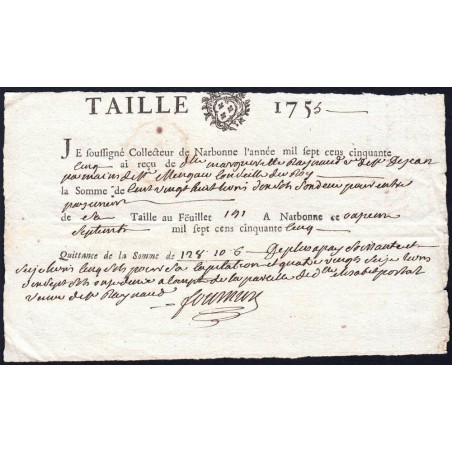 TAILLE 1755
JE soussigné Collecteur de Narbonne l'année mil sept cens cinquante
cinq ai reçu de dlle margueritte Raynaud ve de Mr
par mains de Mr Mengau Conseiller du Roy
la Somme de cent vingt huit livres dix sols six deniers pour entier
payement
de sa Taille au Feüillet 191 A Narbonne ce
Septembre mil sept cens cinquante cinq
Quittance de la Somme de 128 10 6 de plus a payé soixante et
seize livres cinq sols pour sa capitation et quatre vingts seize livres
dix sept sols onze deniers a compte de la parcelle de dlle
veuve de Mr Raynaud